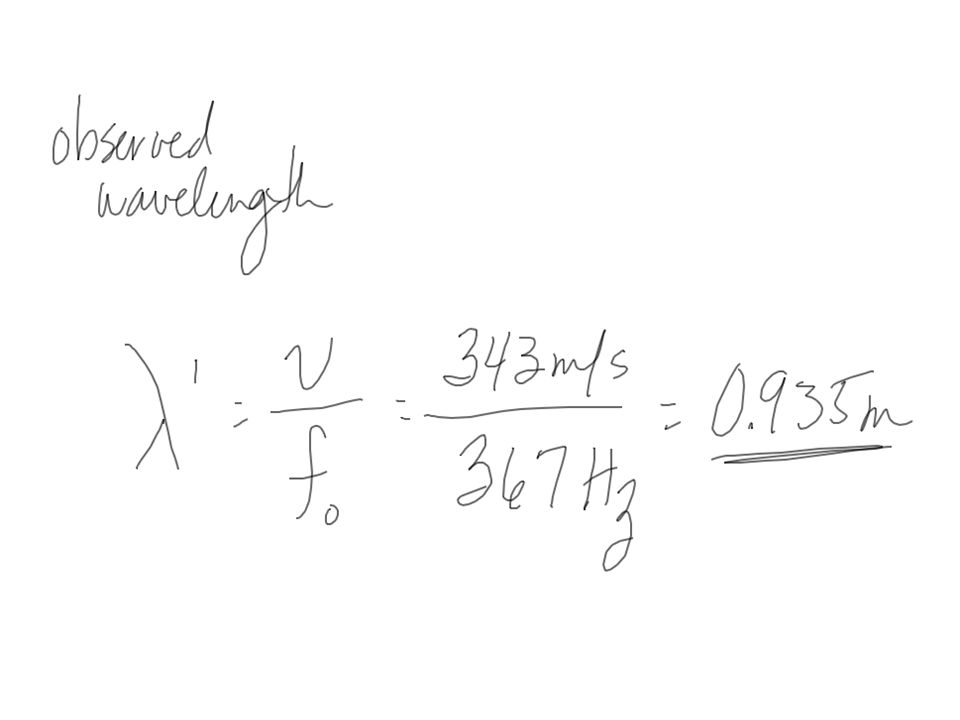 observed
wavelength
λ' = v / f₀ = 343 m/s / 367 Hz = 0.935 m